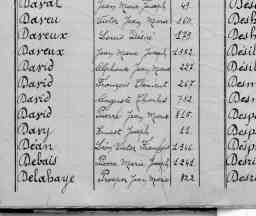 Daval Jean Marie 49 Des
Daveu Victor Jean Marie 160 Desh
Daveux Louis Désiré 179 Desh
Daveux Jean Marie Joseph 1192 Désil
David Alphonse Jean Marie 227 Désil
David François Vincent 267 Desm
David Auguste Charles 752 Desm
David Pierre Jean Marie 815 Desp
Davy Ernest Joseph 12 Desp
Dean Léon Victor Desp
Debais Pierre Marie Joseph 1242 Desri
Delahaye Prosper Jean Marie 822 Desri